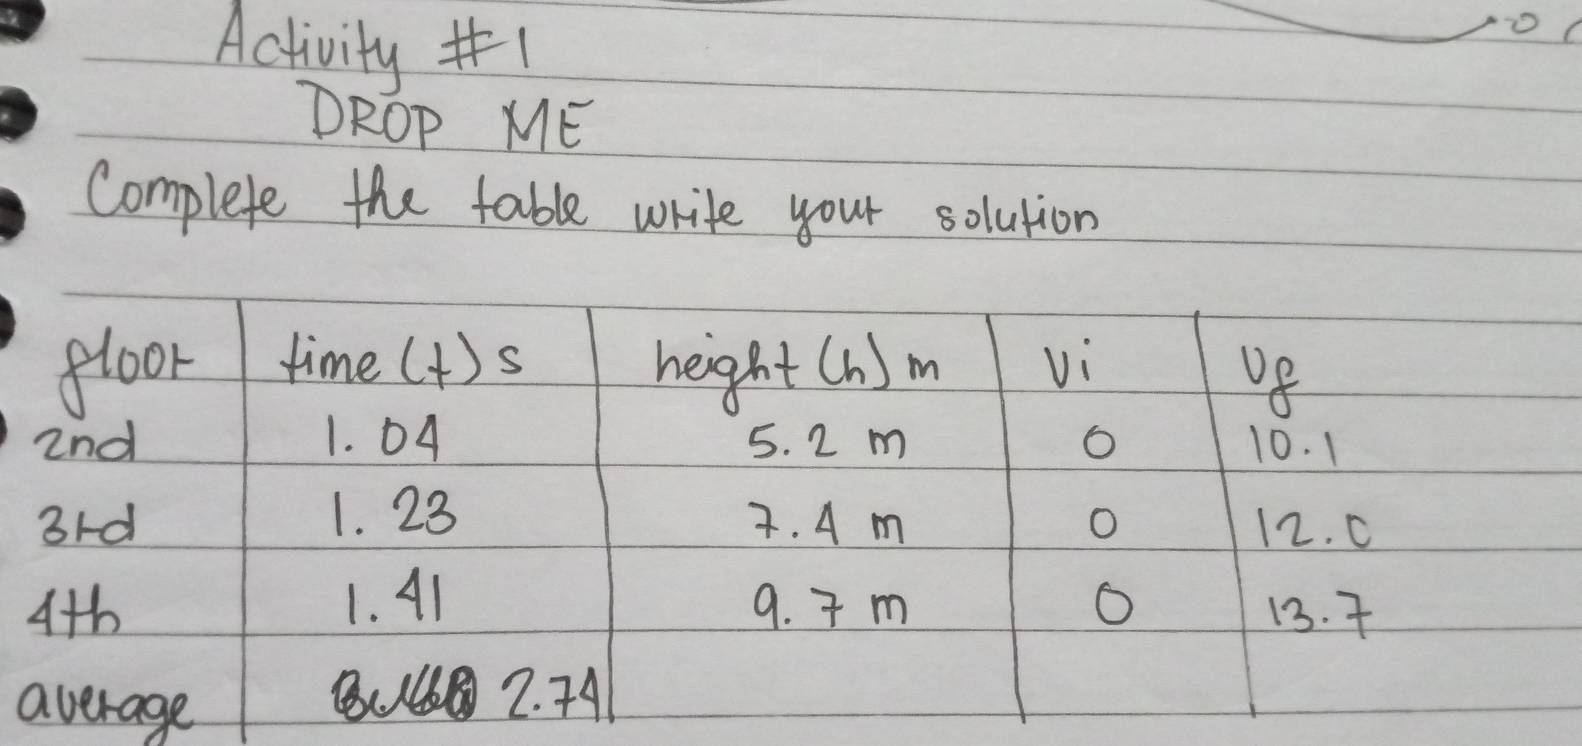 Activity #1
DROP ME
Complete the table write your solution
floor time (t) s height (h) m Vi Vf
2nd 1.04 5.2 m 0 10.1
3rd 1.23 7.4 m 0 12.0
4th 1.41 9.7 m 0 13.7
average 2.74